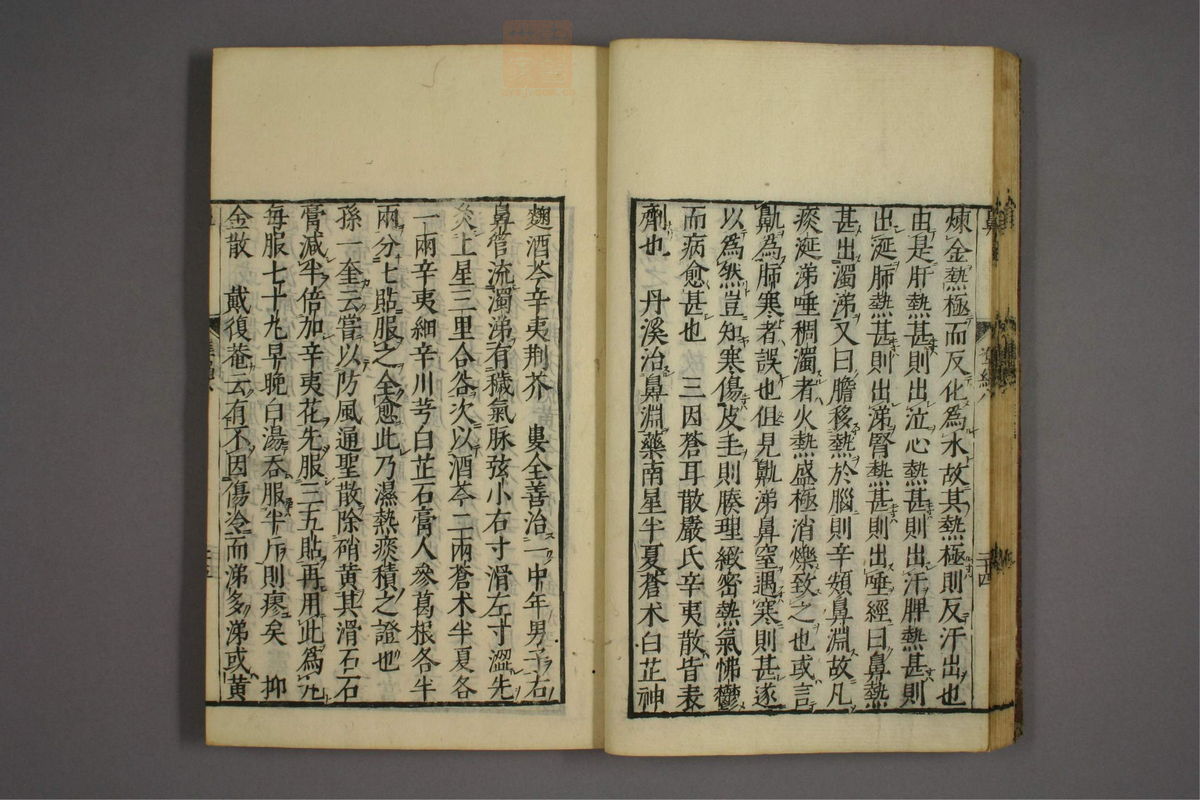 煉金熱極而反化爲水故其熱極則反汗出也
由是肝熱甚則出泣心熱甚則出汗脾熱甚則
出涎肺熱甚則出涕腎熱甚則出唾經曰鼻熱
甚出濁涕又曰膽移熱於腦則辛頞鼻淵故凡
痰涎涕唾稠濁者火熱盛極消爍致之也或言
鼽爲肺寒者誤也但見鼽涕鼻窒遇寒則甚遂
以爲然豈知寒傷皮毛則腠理緻密熱氣怫鬱
而病愈甚也　三因蒼耳散嚴氏辛夷散皆表
劑也　丹溪治鼻淵藥南星半夏蒼术白芷神
麹酒芩辛夷荆芥　婁全善治一中年男子右
鼻管流濁涕有穢氣脉弦小右寸滑左寸澀先
灸上星三里合谷次以酒芩二兩蒼术半夏各
一兩辛夷細辛川芎白芷石膏人參葛根各半
兩分七貼服之全愈此乃濕熱痰積之證也
孫一奎云嘗以防風通聖散除硝黄其滑石石
膏減半倍加辛夷花先服三五貼再用此爲丸
每服七十丸早晚白湯吞服半斤則瘳矣　抑
金散　戴復菴云有不因傷冷而涕多涕或黄